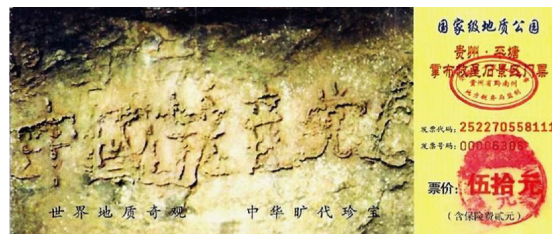 中國共産党
世界地质奇观 中华旷代珍宝
国家级地质公园
贵州·平塘
掌布藏字石景区门票
贵州省黔南州
发票代码: 252270558111
发票号码: 00006305
票价: 伍拾元
(含保险费贰元)